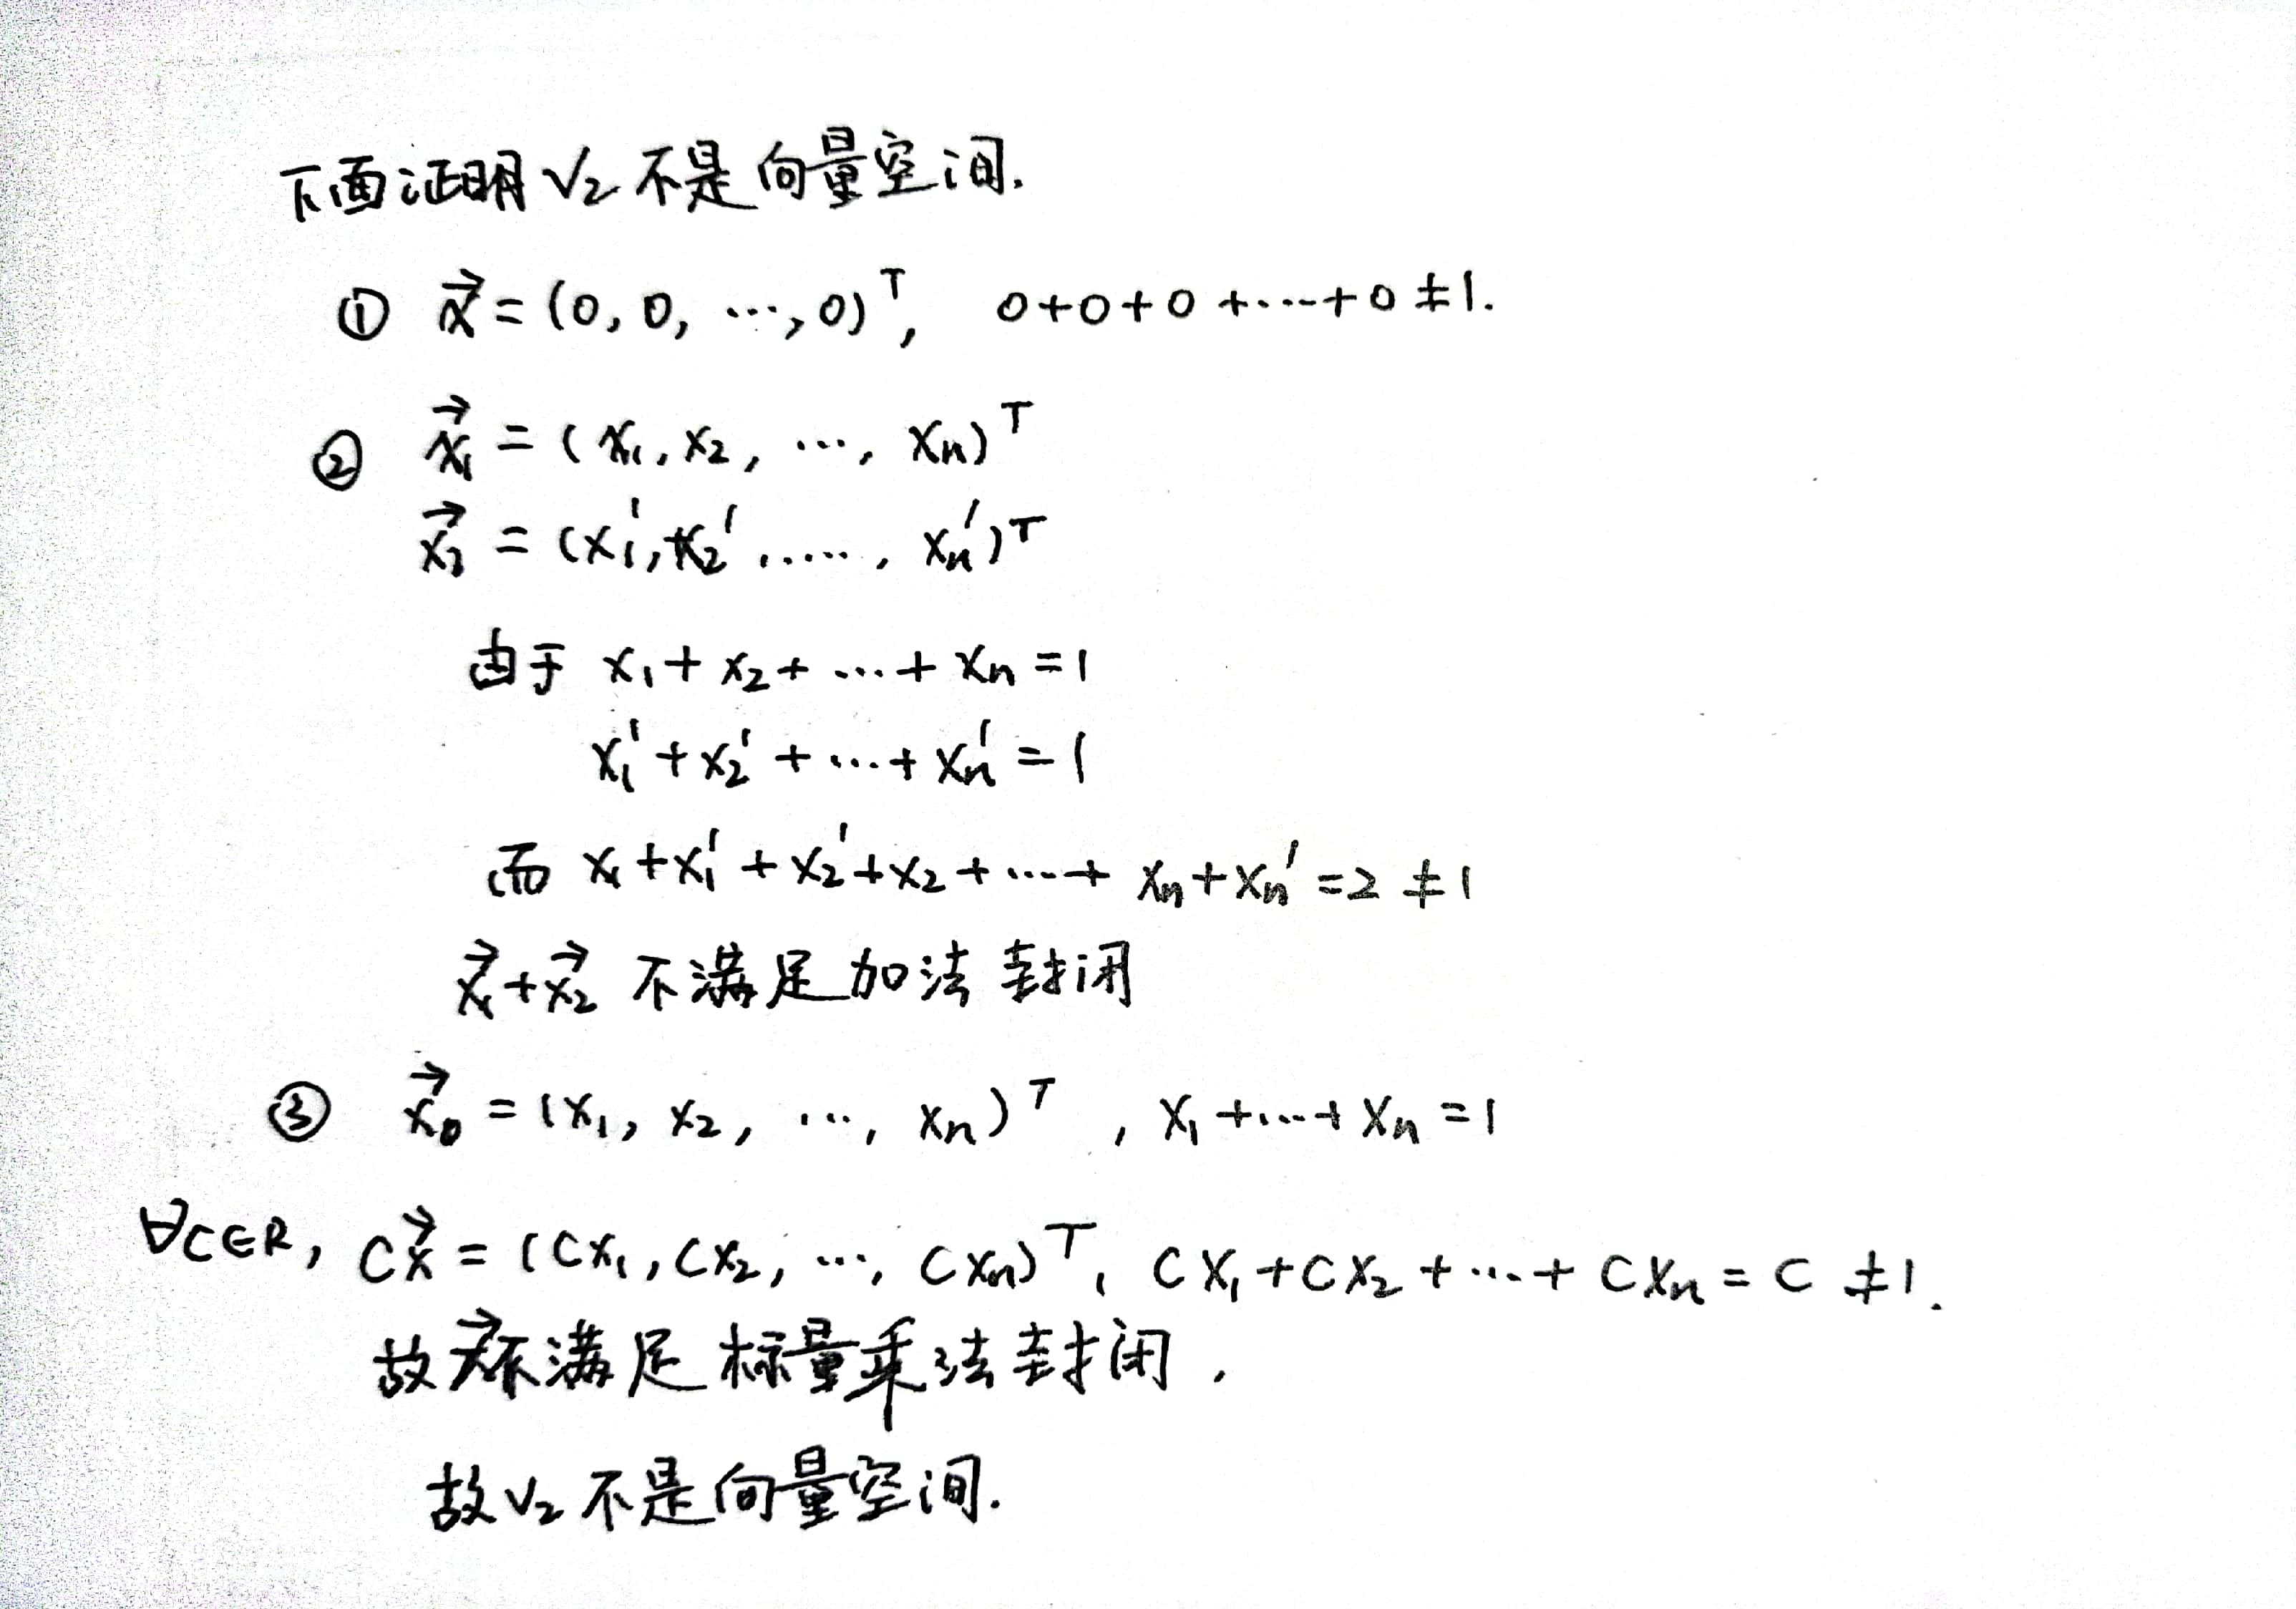 下面证明 V₂ 不是向量空间.
① x⃗ = (0, 0, …, 0)ᵀ, 0+0+0+…+0 ≠ 1.
② x⃗₁ = (x₁, x₂, …, xₙ)ᵀ
x⃗₂ = (x₁′, x₂′, ……, xₙ′)ᵀ
由于 x₁ + x₂ + … + xₙ = 1
x₁′ + x₂′ + … + xₙ′ = 1
而 x₁ + x₁′ + x₂′ + x₂ + … + xₙ + xₙ′ = 2 ≠ 1
x⃗₁ + x⃗₂ 不满足加法封闭
③ x⃗₀ = (x₁, x₂, …, xₙ)ᵀ, x₁ + … + xₙ = 1
∀C∈R, Cx⃗ = (Cx₁, Cx₂, …, Cxₙ)ᵀ, Cx₁ + Cx₂ + … + Cxₙ = C ≠ 1.
故x⃗不满足标量乘法封闭.
故V₂不是向量空间.